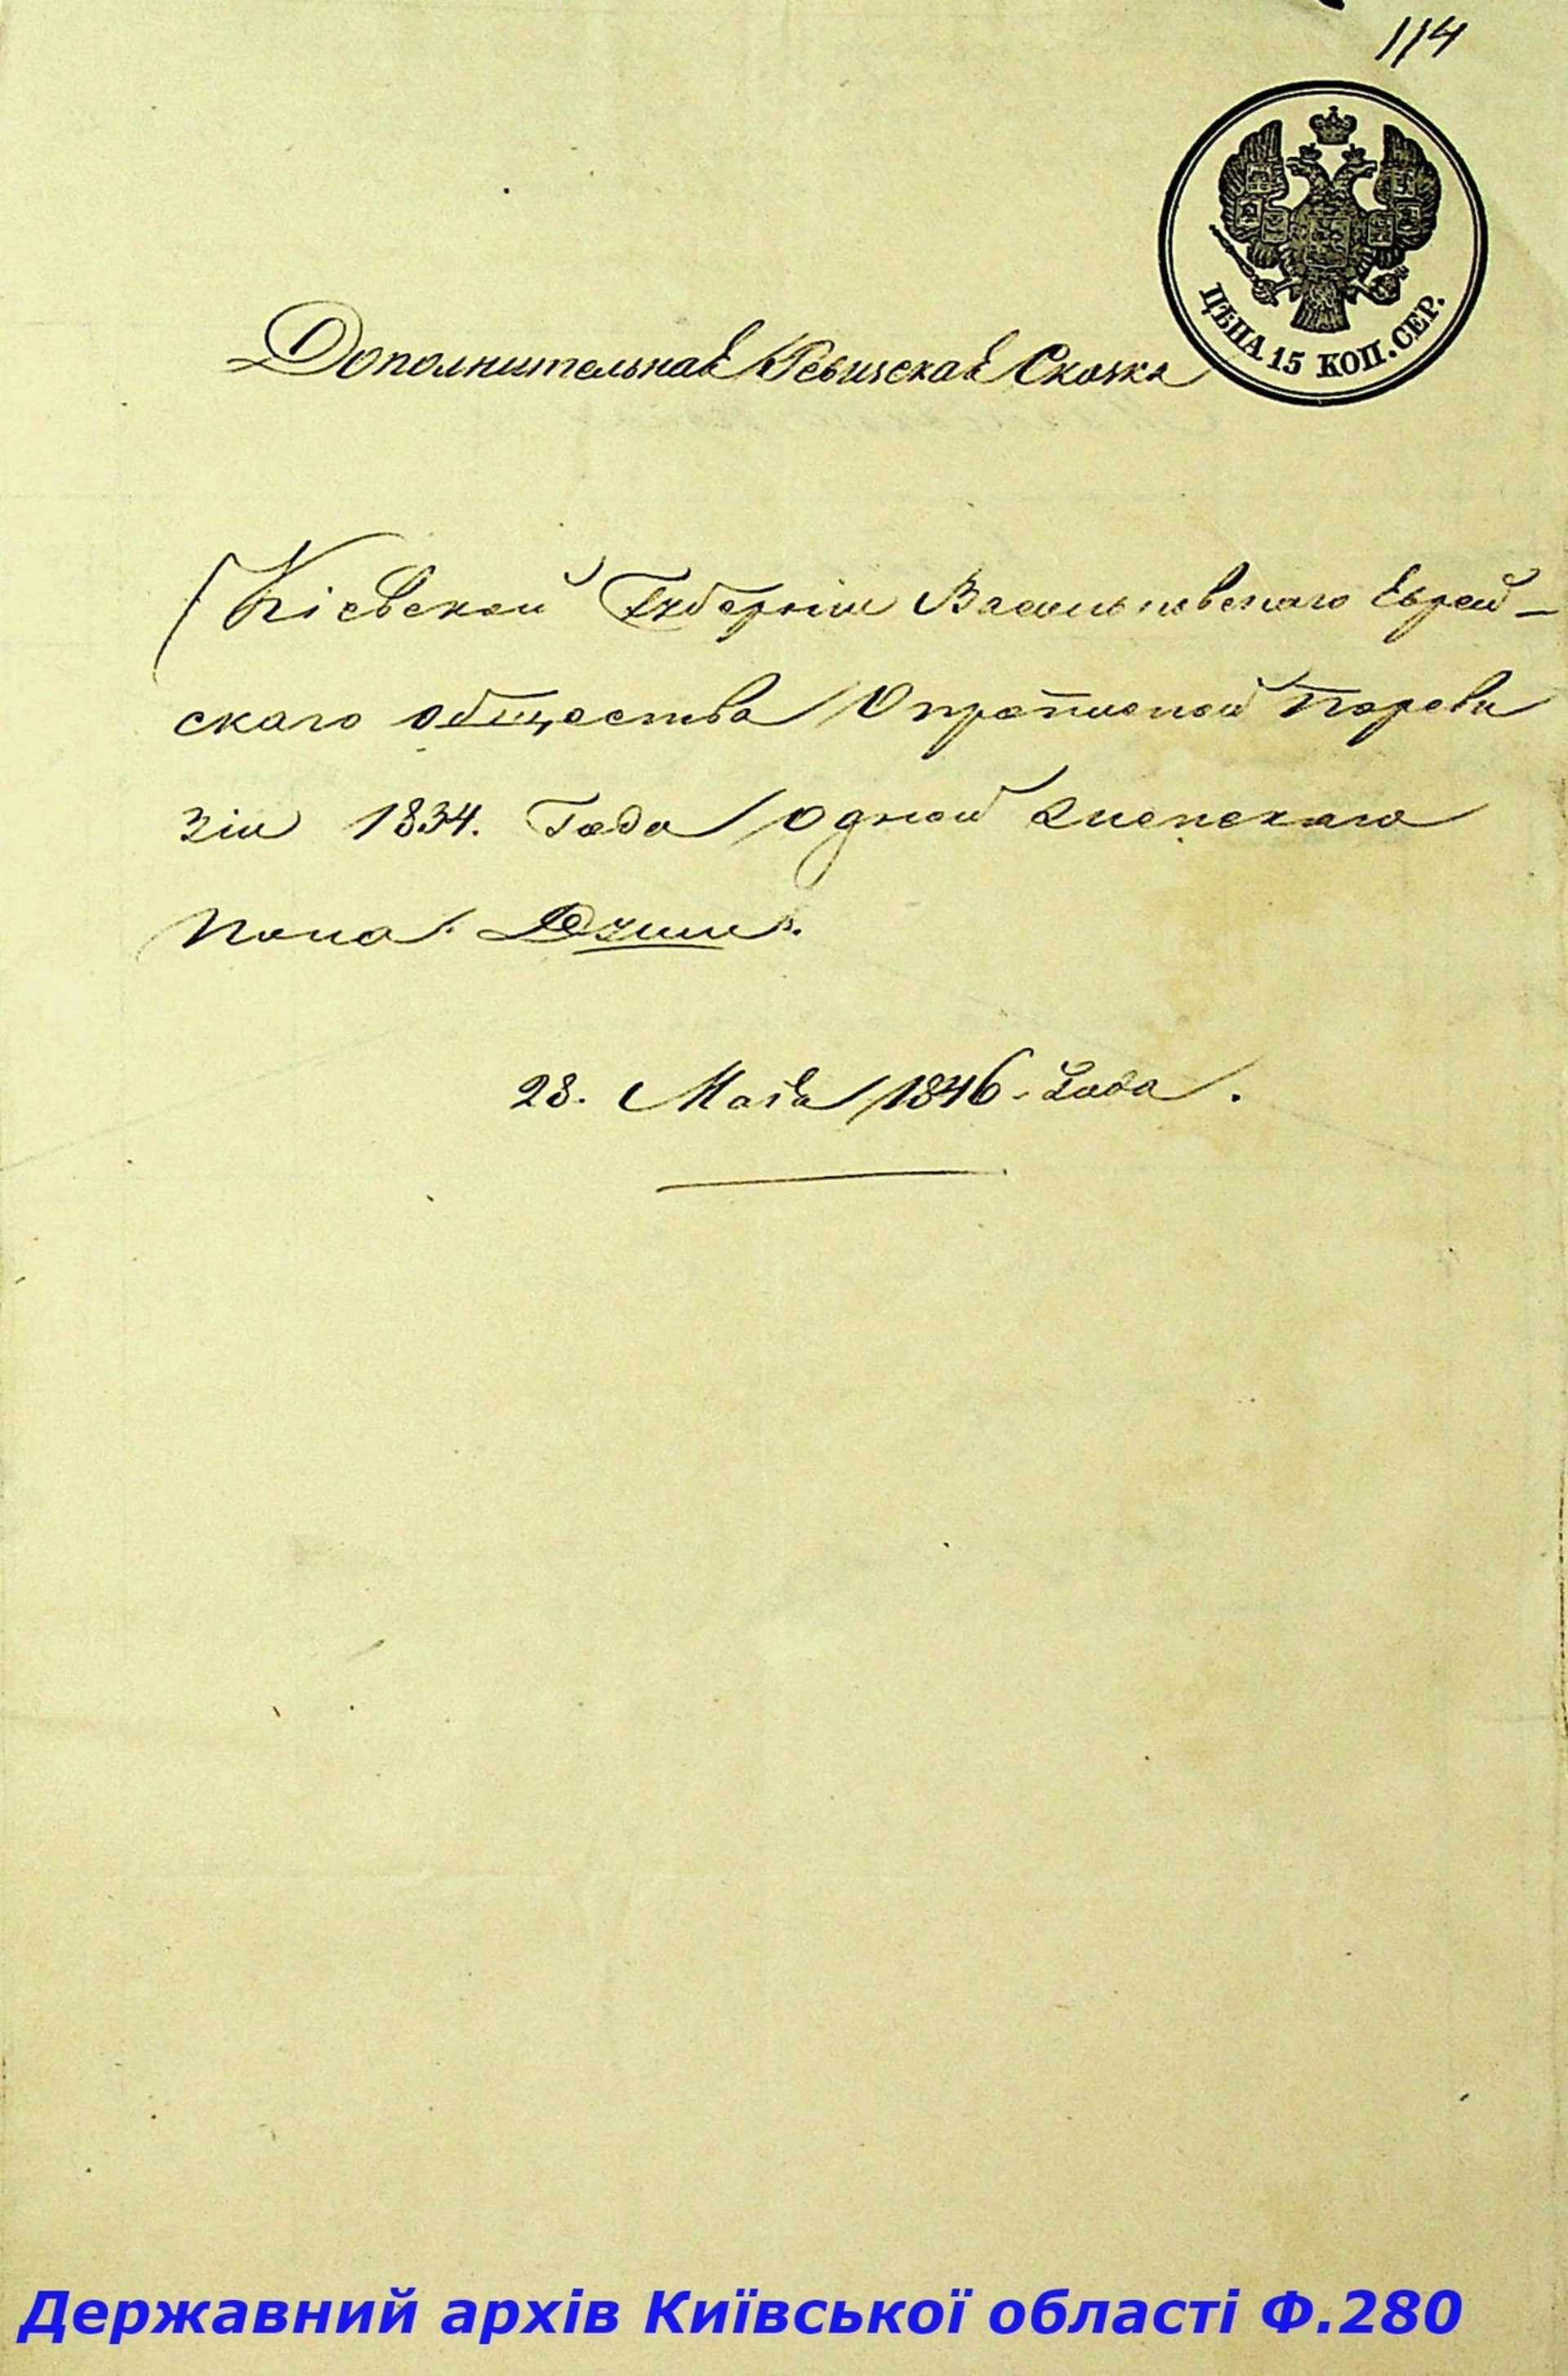 114
ЦѢНА 15 КОП. СЕР.
Дополнительная Ревизская Сказка
Кіевской Губерніи Васильковскаго Еврей-
скаго общества О прописной Пореви
зіи 1834. Года одной женскаго
Пола. Души.
28. Маія 1846. Года.
Державний архів Київської області Ф.280